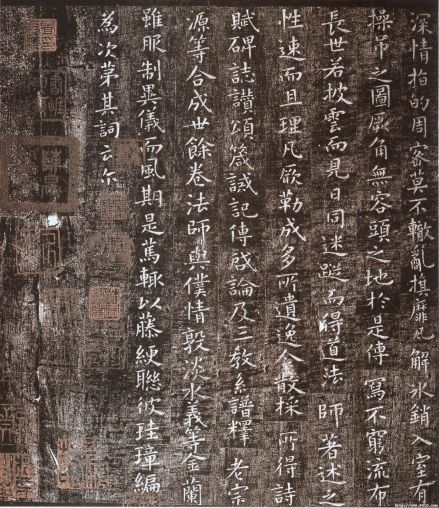 深情指的周密莫不轍亂旗靡瓦解冰銷入室有
操之圖厥角無容頭之地於是傳寫不窮流布
長世若披雲而見日同迷蹤而得道法師著述之
性速而且理凡欲勒成多所遺逸今散採所得詩
賦碑誌讃頌箴誡記傳啟論及三教系譜釋老宗
源等合成卅餘卷法師與僕情敦淡水義等金蘭
雖服制異儀而風期是篤輒以藤綆聯彼珪璋編
為次第其詞云尔